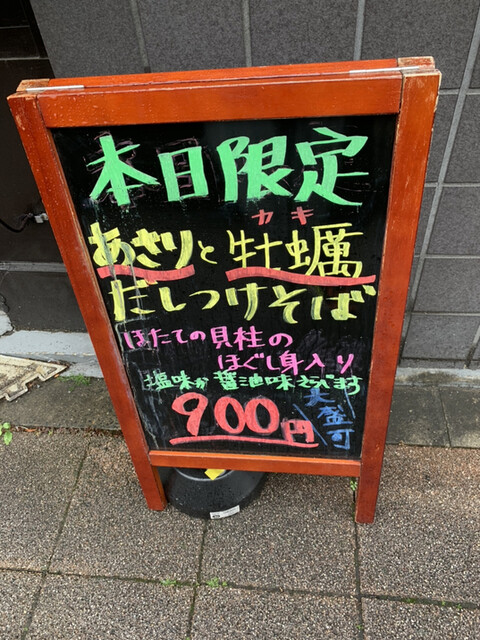 本日限定
カキ
あさりと牡蠣
だしつけそば
ほたての貝柱の
ほぐし身入り
塩味か醤油味えらべます
900円
大盛可